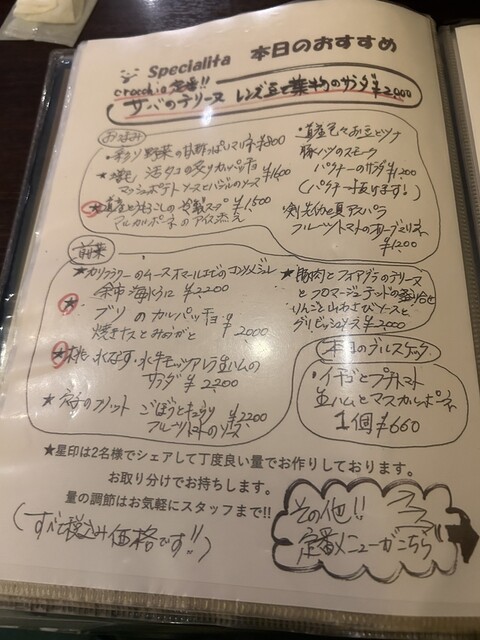 Specialita 本日のおすすめ
crocchio定番!!
サバのテリーヌ レンズ豆と葉物のサラダ ¥2,000
おつまみ
・彩り野菜の甘酢っぱいマリネ ¥800
・活タコの炙りカルパッチョ ¥1600
マッシュポテトソースとバジルのソース
とうもろこしの冷製スープ ¥1,500
マスカルポーネのアイス添え
お豆とツナ
豚ハツのスモーク
パクチーのサラダ ¥1,200
(パクチー抜けます!)
夏アスパラ
フルーツトマトのオーブン
¥1200
前菜
★カリフラワーのムース オマールエビのコンソメジュレ
余市海水うに ¥2200
★ブリのカルパッチョ
焼きナスとみょうが ¥2,000
★桃・水なす・水牛モッツァレラ生ハムの
サラダ ¥2,200
★穴子のフリット ごぼうときゅうり ¥2200
フルーツトマトのソース
★豚肉とフォアグラのテリーヌ
とフロマージュテッドの盛り合せ
りんごと山わさびソースと
グリビッシュソース ¥2,000
本日のブルスケッタ
・イチゴとプチトマト
生ハムとマスカルポーネ
1個 ¥660
★星印は2名様でシェアして丁度良い量でお作りしております。
お取り分けでお持ちします。
量の調節はお気軽にスタッフまで!!
(すべて税込み価格です!!)
その他!!
定番メニューがこちら